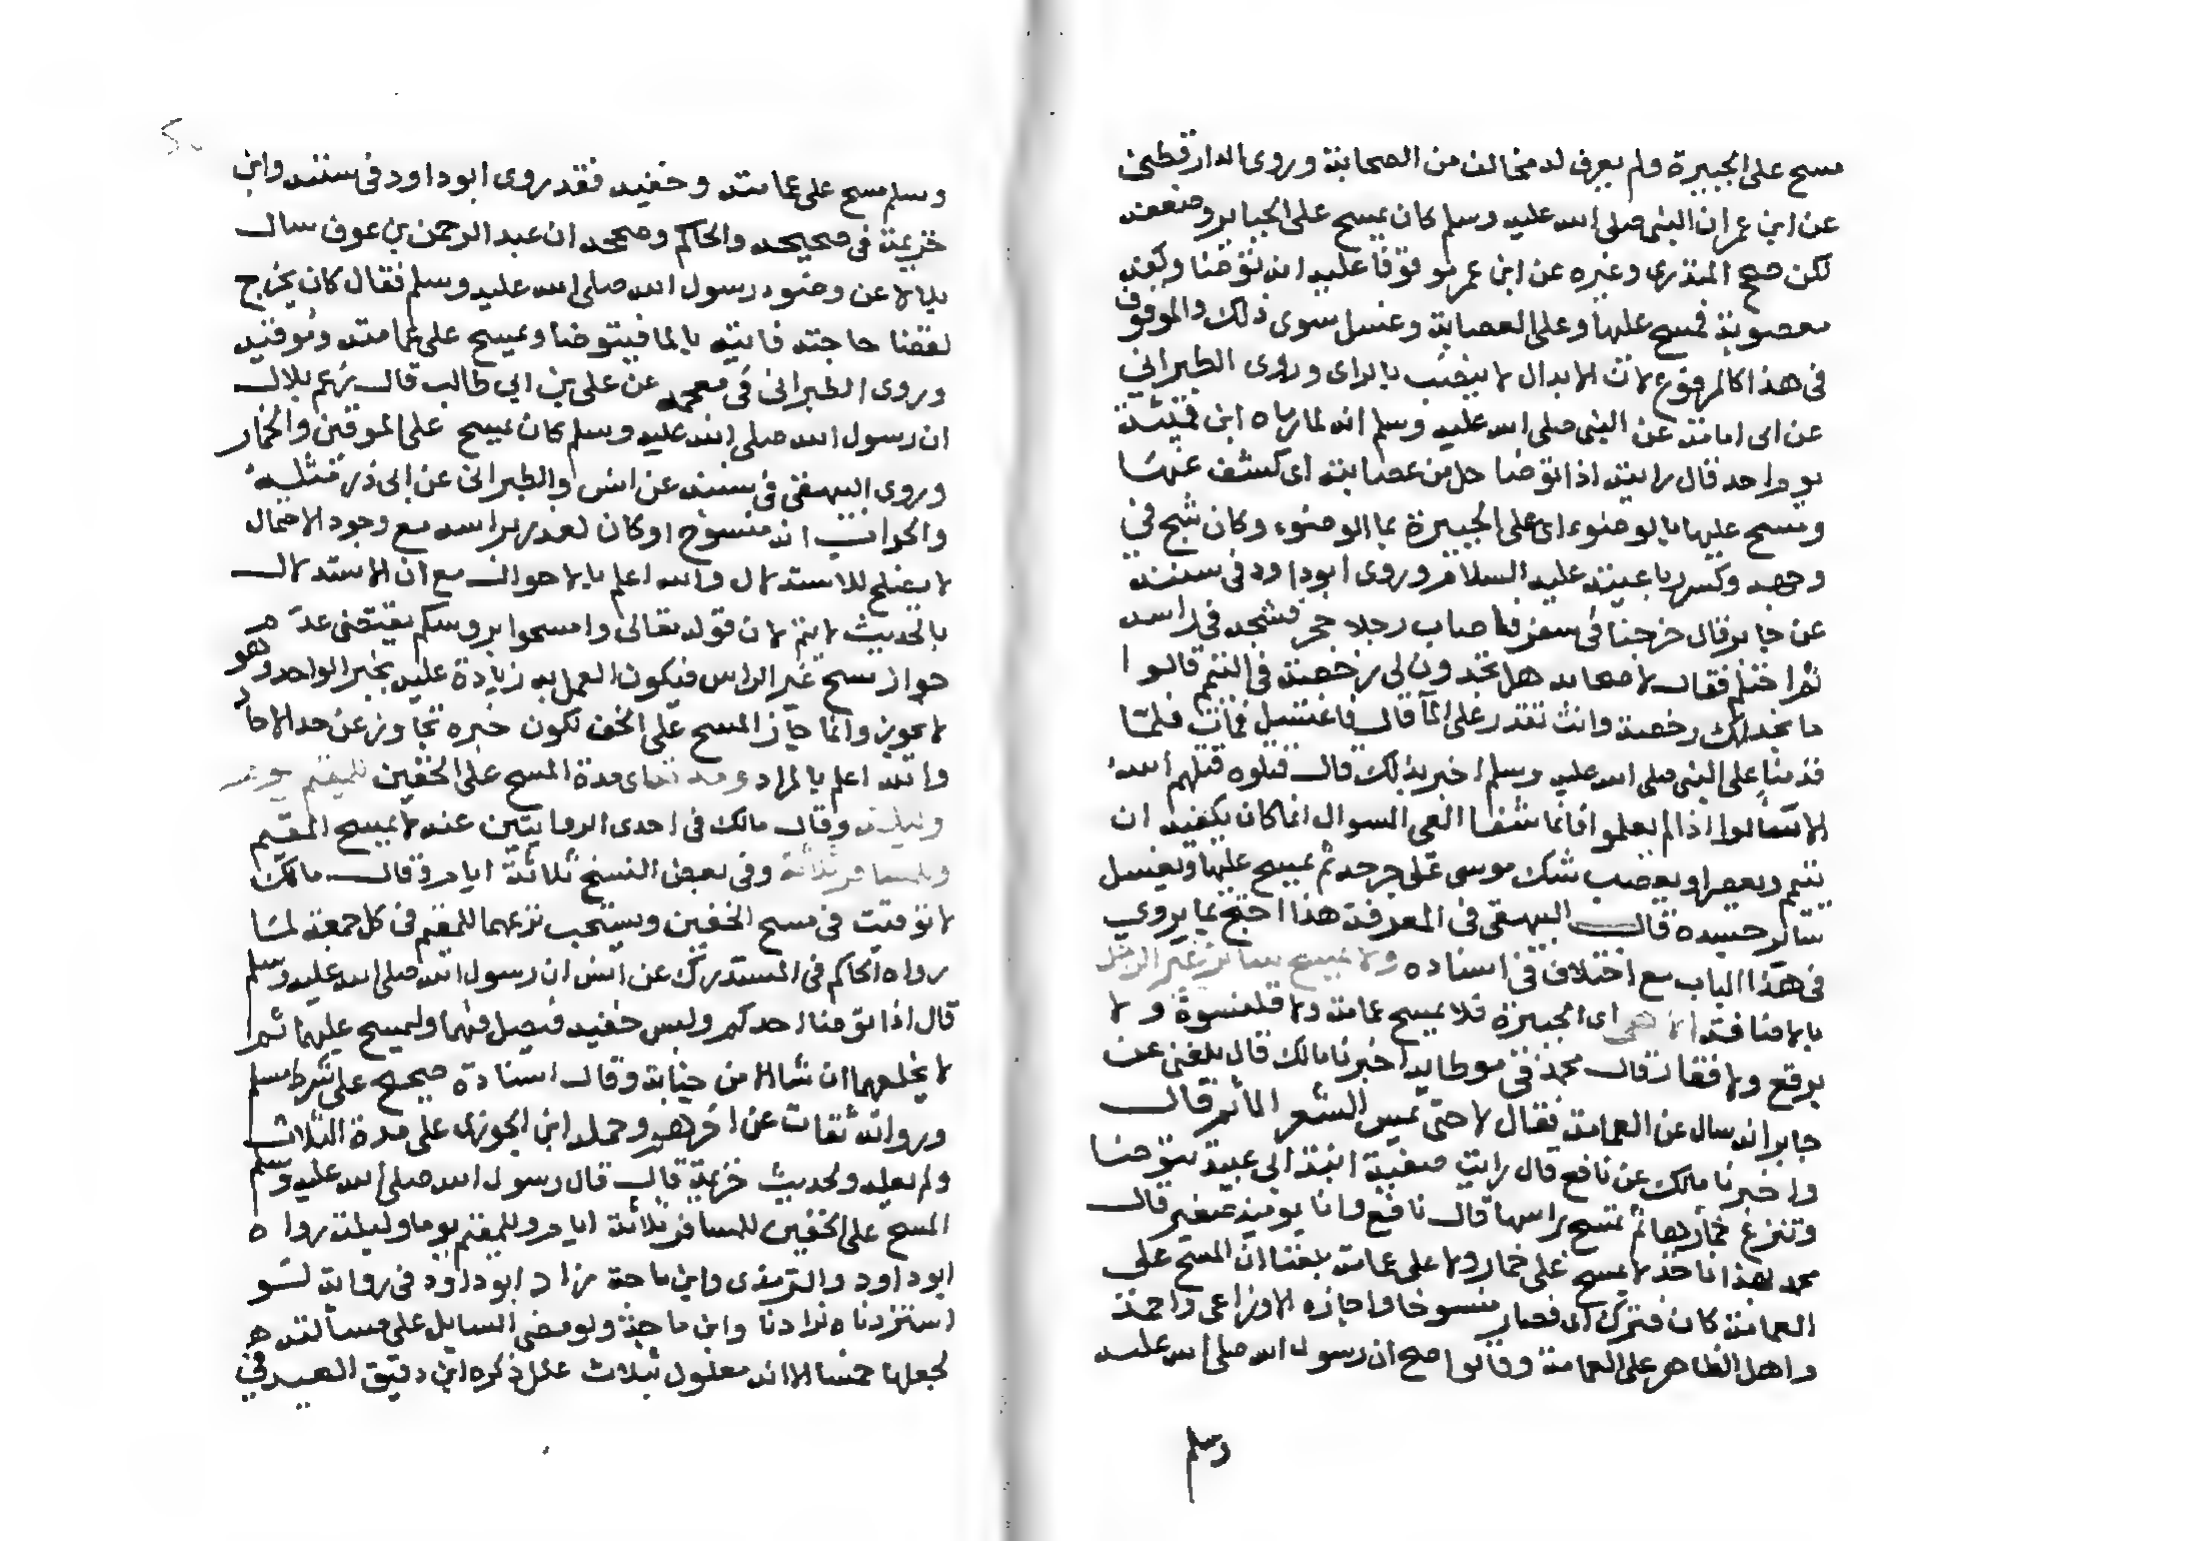 مسح على الجبيرة ولم يعرف له مخالف من الصحابة وروى الدارقطني
عن ابن عمر ان النبي صلى الله عليه وسلم كان يمسح على الجبائر وضعفه
لكن صحح المنذري وغيره عن ابن عمر موقوفا عليه انه توضا وكفه
معصوبة فمسح عليها وعلى العصابة وغسل سوى ذلك والموقوف
في هذا كالمرفوع لان الابدال لا ينصب بالراى وروى الطبراني
عن ابى امامة عن النبي صلى الله عليه وسلم انه لما رماه ابن قميئة
يوم احد قال رايته اذا توضا حل من عصابته اى كشف عنها
ومسح عليها بالوضوء اى على الجبيرة بما الوضوء وكان شج في
وجهه وكسر رباعيته عليه السلام وروى ابو داود في سننه
عن جابر قال خرجنا في سفر فاصاب رجلا حجر فشجه في راسه
ثم احتلم فقال لاصحابه هل تجدون لى رخصة في التيمم قالوا
ما نجد لك رخصة وانت تقدر على الما قال فاغتسل فمات فلما
قدمنا على النبي صلى الله عليه وسلم اخبر بذلك قال قتلوه قتلهم الله
الا سالوا اذا لم يعلموا فانما شفا العي السوال انما كان يكفيه ان
يتيمم ويعصر او يعصب شك موسى على جرحه ثم يمسح عليها ويغسل
سائر جسده قال البيهقي في المعرفة هذا اصح ما يروي
في هذا الباب مع اختلاف في اسناده ولا يمسح ساتر غير الرجل
بالاضافة الا هى اى الجبيرة فلا يمسح عمامة ولا قلنسوة ولا
برقع ولا قفاز قال محمد في موطاه اخبرنا مالك قال بلغني عن
جابر انه سال عن العمامة فقال لا حتى يمس الشعر الما ثم قال
واخبرنا مالك عن نافع قال رايت صفية ابنة ابي عبيد تتوضا
وتنزع خمارها ثم تمسح براسها قال نافع وانا يومئذ صغير قال
محمد بهذا ناخذ لا يمسح على خمار ولا على عمامة بلغنا ان المسح على
العمامة كان فترك اى فصار منسوخا واجازه الاوزاعى واحمد
واهل الظاهر على العمامة وقالوا صح ان رسول الله صلى الله عليه
وسلم
وسلم مسح على عمامته وخفيه فقد روى ابو داود في سننه وابن
خزيمة في صحيحه والحاكم وصححه ان عبد الرحمن بن عوف سال
بلالا عن وضوء رسول الله صلى الله عليه وسلم فقال كان يخرج
لقضا حاجته فاتيته بالما فيتوضا ويمسح على عمامته وموقيه
وروى الطبرانى في معجمه عن على بن ابي طالب قال زعم بلال
ان رسول الله صلى الله عليه وسلم كان يمسح على الموقين والخمار
وروى البيهقي في سننه عن انس والطبرانى عن ابى ذر مثله
والجواب انه منسوخ او كان لعذر براسه مع وجود الاحتمال
لا يصلح للاستدلال والله اعلم بالاحوال مع ان الاستدلال
بالحديث لا يتم لان قوله تعالى وامسحوا بروسكم يقتضى عدم
جواز مسح غير الراس فيكون العمل به زيادة عليه بخبر الواحد وهو
لا يجوز وانما جاز المسح على الخف لكون خبره تجاوز عن حد الاحاد
والله اعلم بالمراد ومدته اى مدة المسح على الخفين للمقيم يوم
وليلة وقال مالك في احدى الروايتين عنه لا يمسح المقيم
وللمسافر ثلاثة وفي بعض النسخ ثلاثة ايام وقال مالك
لا توقيت في مسح الخفين ويستحب نزعهما للمقيم في كل جمعة لما
رواه الحاكم في المستدرك عن انس ان رسول الله صلى الله عليه وسلم
قال اذا توضا احدكم ولبس خفيه فيصل فيهما وليمسح عليهما ثم
لا يخلعهما ان شا الا من جنابة وقال اسناده صحيح على شرط مسلم
ورواته ثقات عن اخرهم وحمله ابن الجوزى على مدة الثلاث
ولم يعله ولحديث خزيمة قال قال رسول الله صلى الله عليه وسلم
المسح على الخفين للمسافر ثلاثة ايام وللمقيم يوما وليلة رواه
ابو داود والترمذى وابن ماجة زاد ابو داود في رواية لو
استزدناه لزادنا وابن ماجة ولو مضى السايل على مسألته
لجعلها خمسا الا انه معلول بثلاث علل ذكره ابن دقيق العيد في